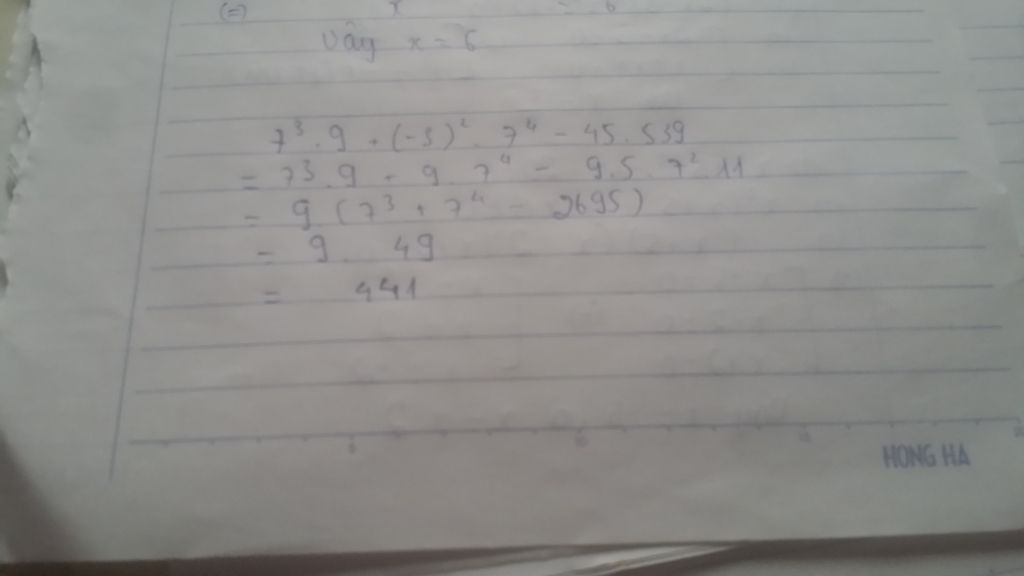 (=) x = 6
Vậy x = 6
7³ . 9 + (-3)² . 7⁴ - 45 . 539
= 7³ . 9 + 9 . 7⁴ - 9.5 . 7² . 11
= 9 (7³ + 7⁴ - 2695)
= 9 . 49
= 441
HONG HA